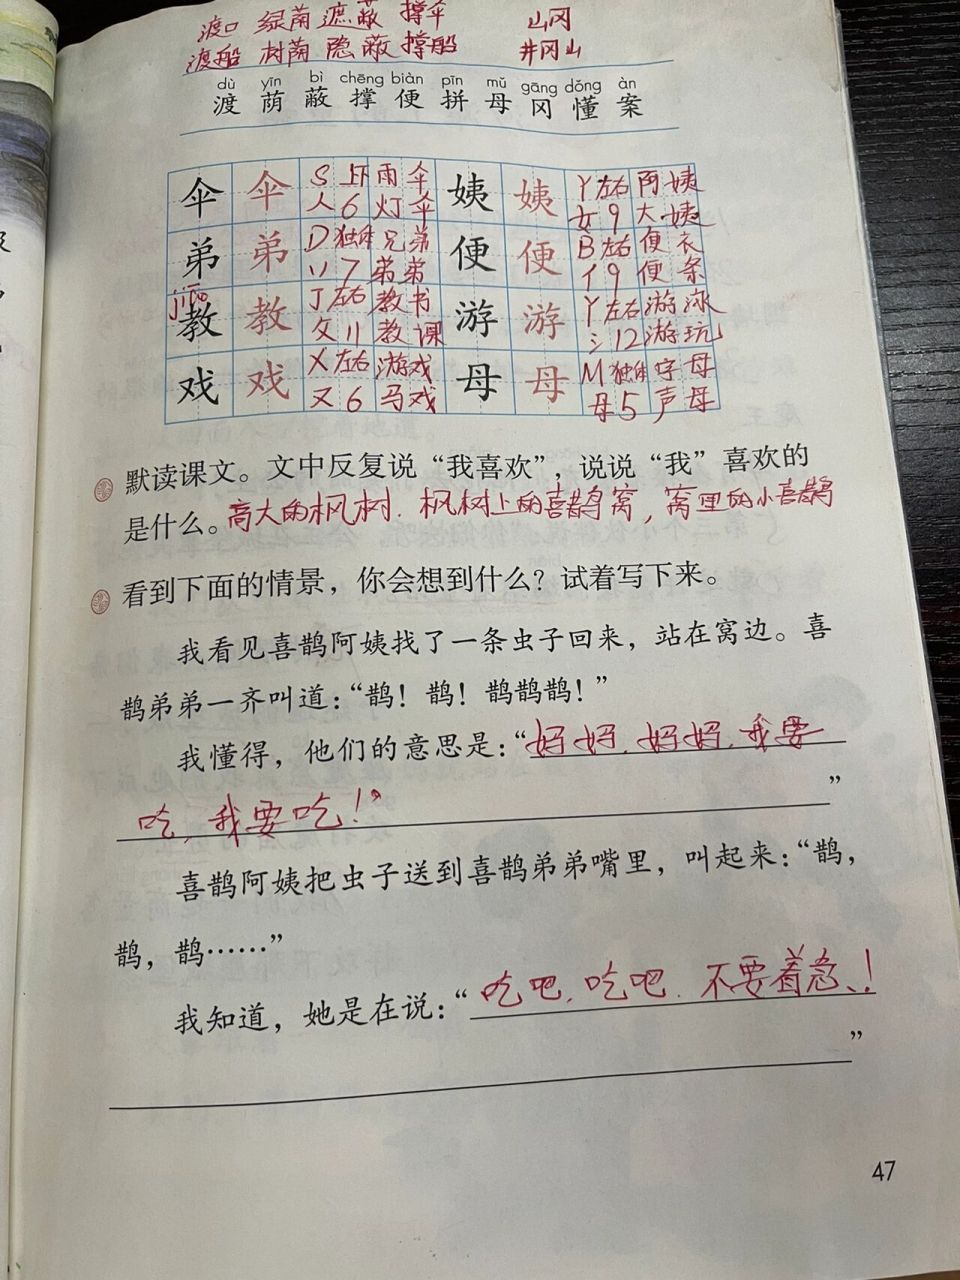 渡口 绿荫 遮蔽 撑伞 山冈
渡船 树荫 隐蔽 撑船 井冈山
dù yīn bì chēng biàn pīn mǔ gāng dǒng àn
渡 荫 蔽 撑 便 拼 母 冈 懂 案
伞 伞 S 上下 雨伞 姨 姨 Y 左右 阿姨
人 6 灯伞 女 9 大姨
弟 弟 D 独体 兄弟 便 便 B 左右 便衣
丷 7 弟弟 亻 9 便条
jiāo
教 教 J 左右 教书 游 游 Y 左右 游泳
攵 11 教课 氵 12 游玩
戏 戏 X 左右 游戏 母 母 M 独体 字母
又 6 马戏 母 5 声母
默读课文。文中反复说“我喜欢”,说说“我”喜欢的
是什么。高大的枫树、枫树上的喜鹊窝,窝里的小喜鹊
看到下面的情景,你会想到什么?试着写下来。
我看见喜鹊阿姨找了一条虫子回来,站在窝边。喜
鹊弟弟一齐叫道:“鹊!鹊!鹊鹊鹊!”
我懂得,他们的意思是:“妈妈、妈妈、我要
吃,我要吃!” ”
喜鹊阿姨把虫子送到喜鹊弟弟嘴里,叫起来:“鹊,
鹊,鹊……”
我知道,她是在说:“吃吧、吃吧、不要着急!
”
47